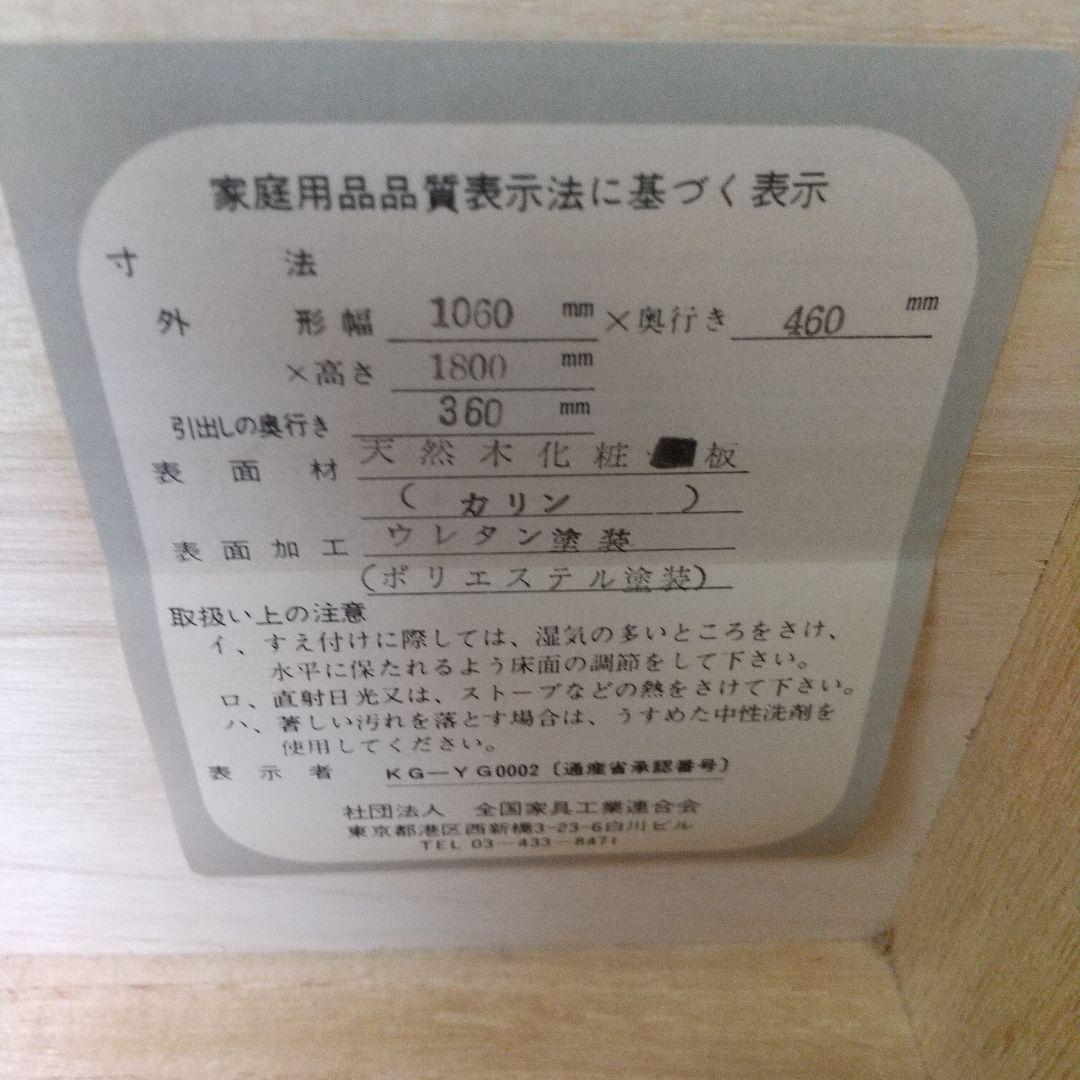 家庭用品品質表示法に基づく表示
寸法
外形幅 1060 mm ×奥行き 460 mm
×高さ 1800 mm
引出しの奥行き 360 mm
表面材 天然木化粧 板
(カリン)
表面加工 ウレタン塗装
(ポリエステル塗装)
取扱い上の注意
イ、すえ付けに際しては、湿気の多いところをさけ、
水平に保たれるよう床面の調節をして下さい。
ロ、直射日光又は、ストーブなどの熱をさけて下さい。
ハ、著しい汚れを落とす場合は、うすめた中性洗剤を
使用してください。
表示者 KG―YG0002〔通産省承認番号〕
社団法人 全国家具工業連合会
東京都港区西新橋3-23-6白川ビル
TEL 03―433―8471